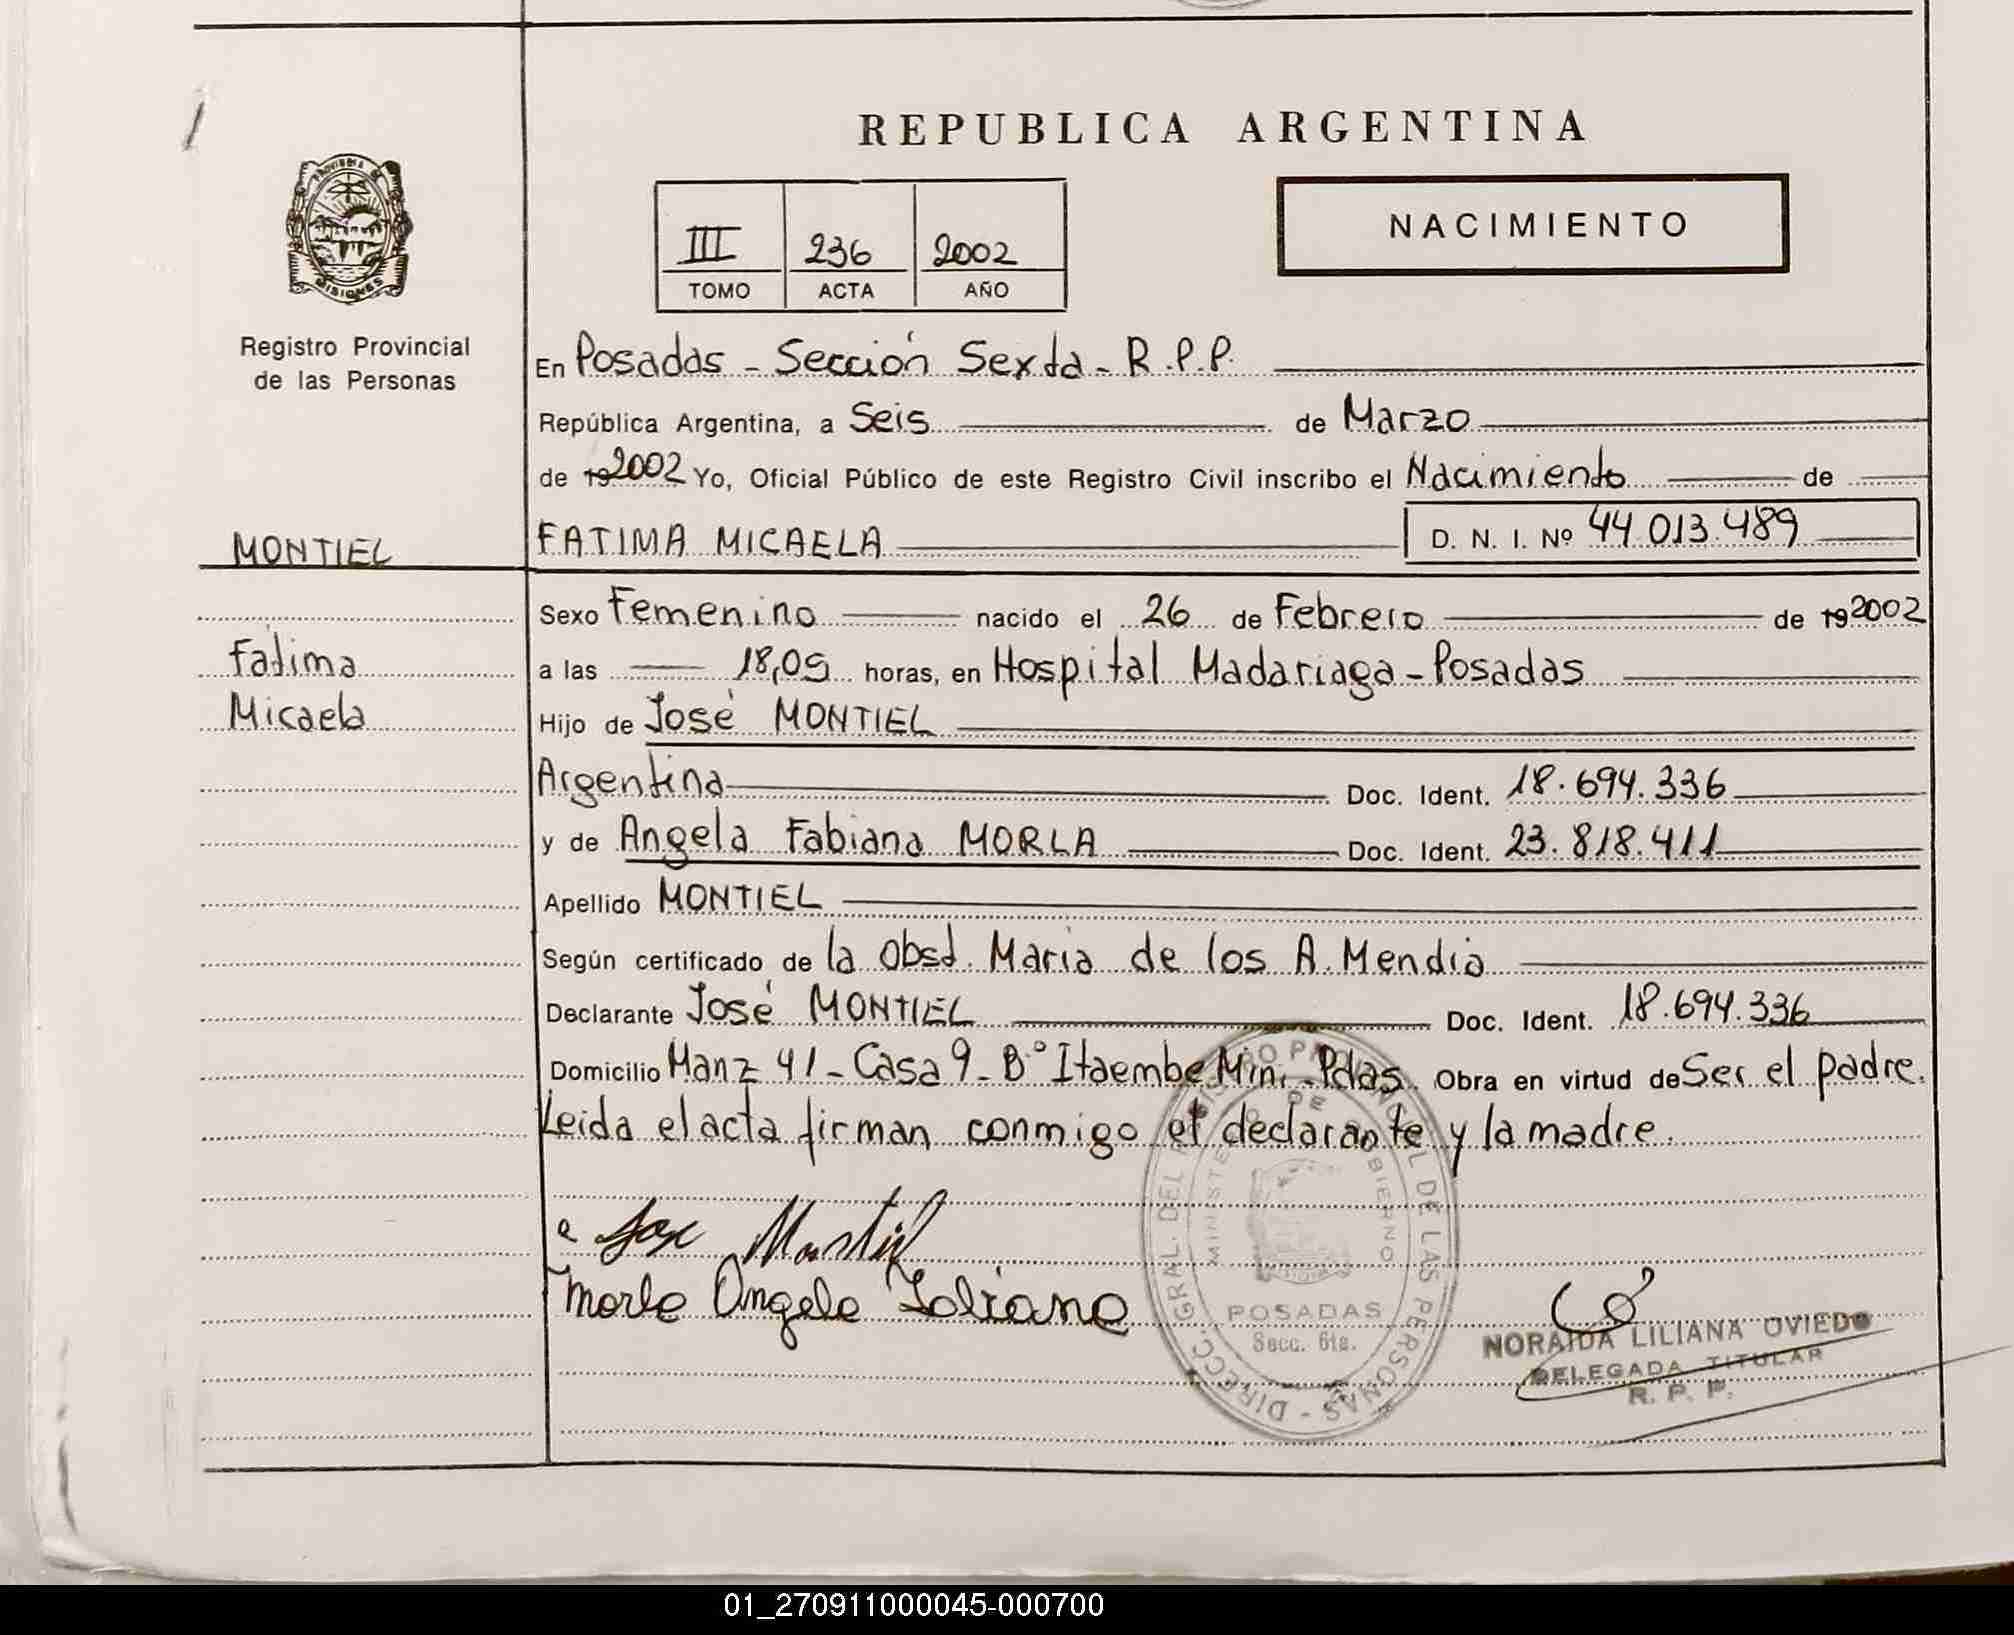 REPUBLICA ARGENTINA
III 236 2002
TOMO ACTA AÑO
NACIMIENTO
PROVINCIA DE MISIONES
Registro Provincial
de las Personas
En Posadas - Sección Sexta - R.P.P.
República Argentina, a Seis de Marzo
de 19 2002 Yo, Oficial Público de este Registro Civil inscribo el Nacimiento de
MONTIEL
FATIMA MICAELA D. N. I. Nº 44.013.489
Sexo Femenino nacido el 26 de Febrero de 19 2002
Fatima
a las 18,05 horas, en Hospital Madariaga - Posadas
Micaela
Hijo de José MONTIEL
Argentina Doc. Ident. 18.694.336
y de Angela Fabiana MORLA Doc. Ident. 23.818.411
Apellido MONTIEL
Según certificado de la Obst. Maria de los A. Mendia
Declarante José MONTIEL Doc. Ident. 18.694.336
Domicilio Manz 41 - Casa 9 - Bº Itaembe Mini - Pdas. Obra en virtud de Ser el padre.
Leida el acta firman conmigo el declarante y la madre.
Jose Montiel
Morla Angela Fabiana
DIRECC. GRAL. DEL REGISTRO PROVINCIAL DE LAS PERSONAS
MINISTERIO DE GOBIERNO
POSADAS
Secc. 6ta.
NORAIDA LILIANA OVIEDO
DELEGADA TITULAR
R. P. P.
01_270911000045-000700